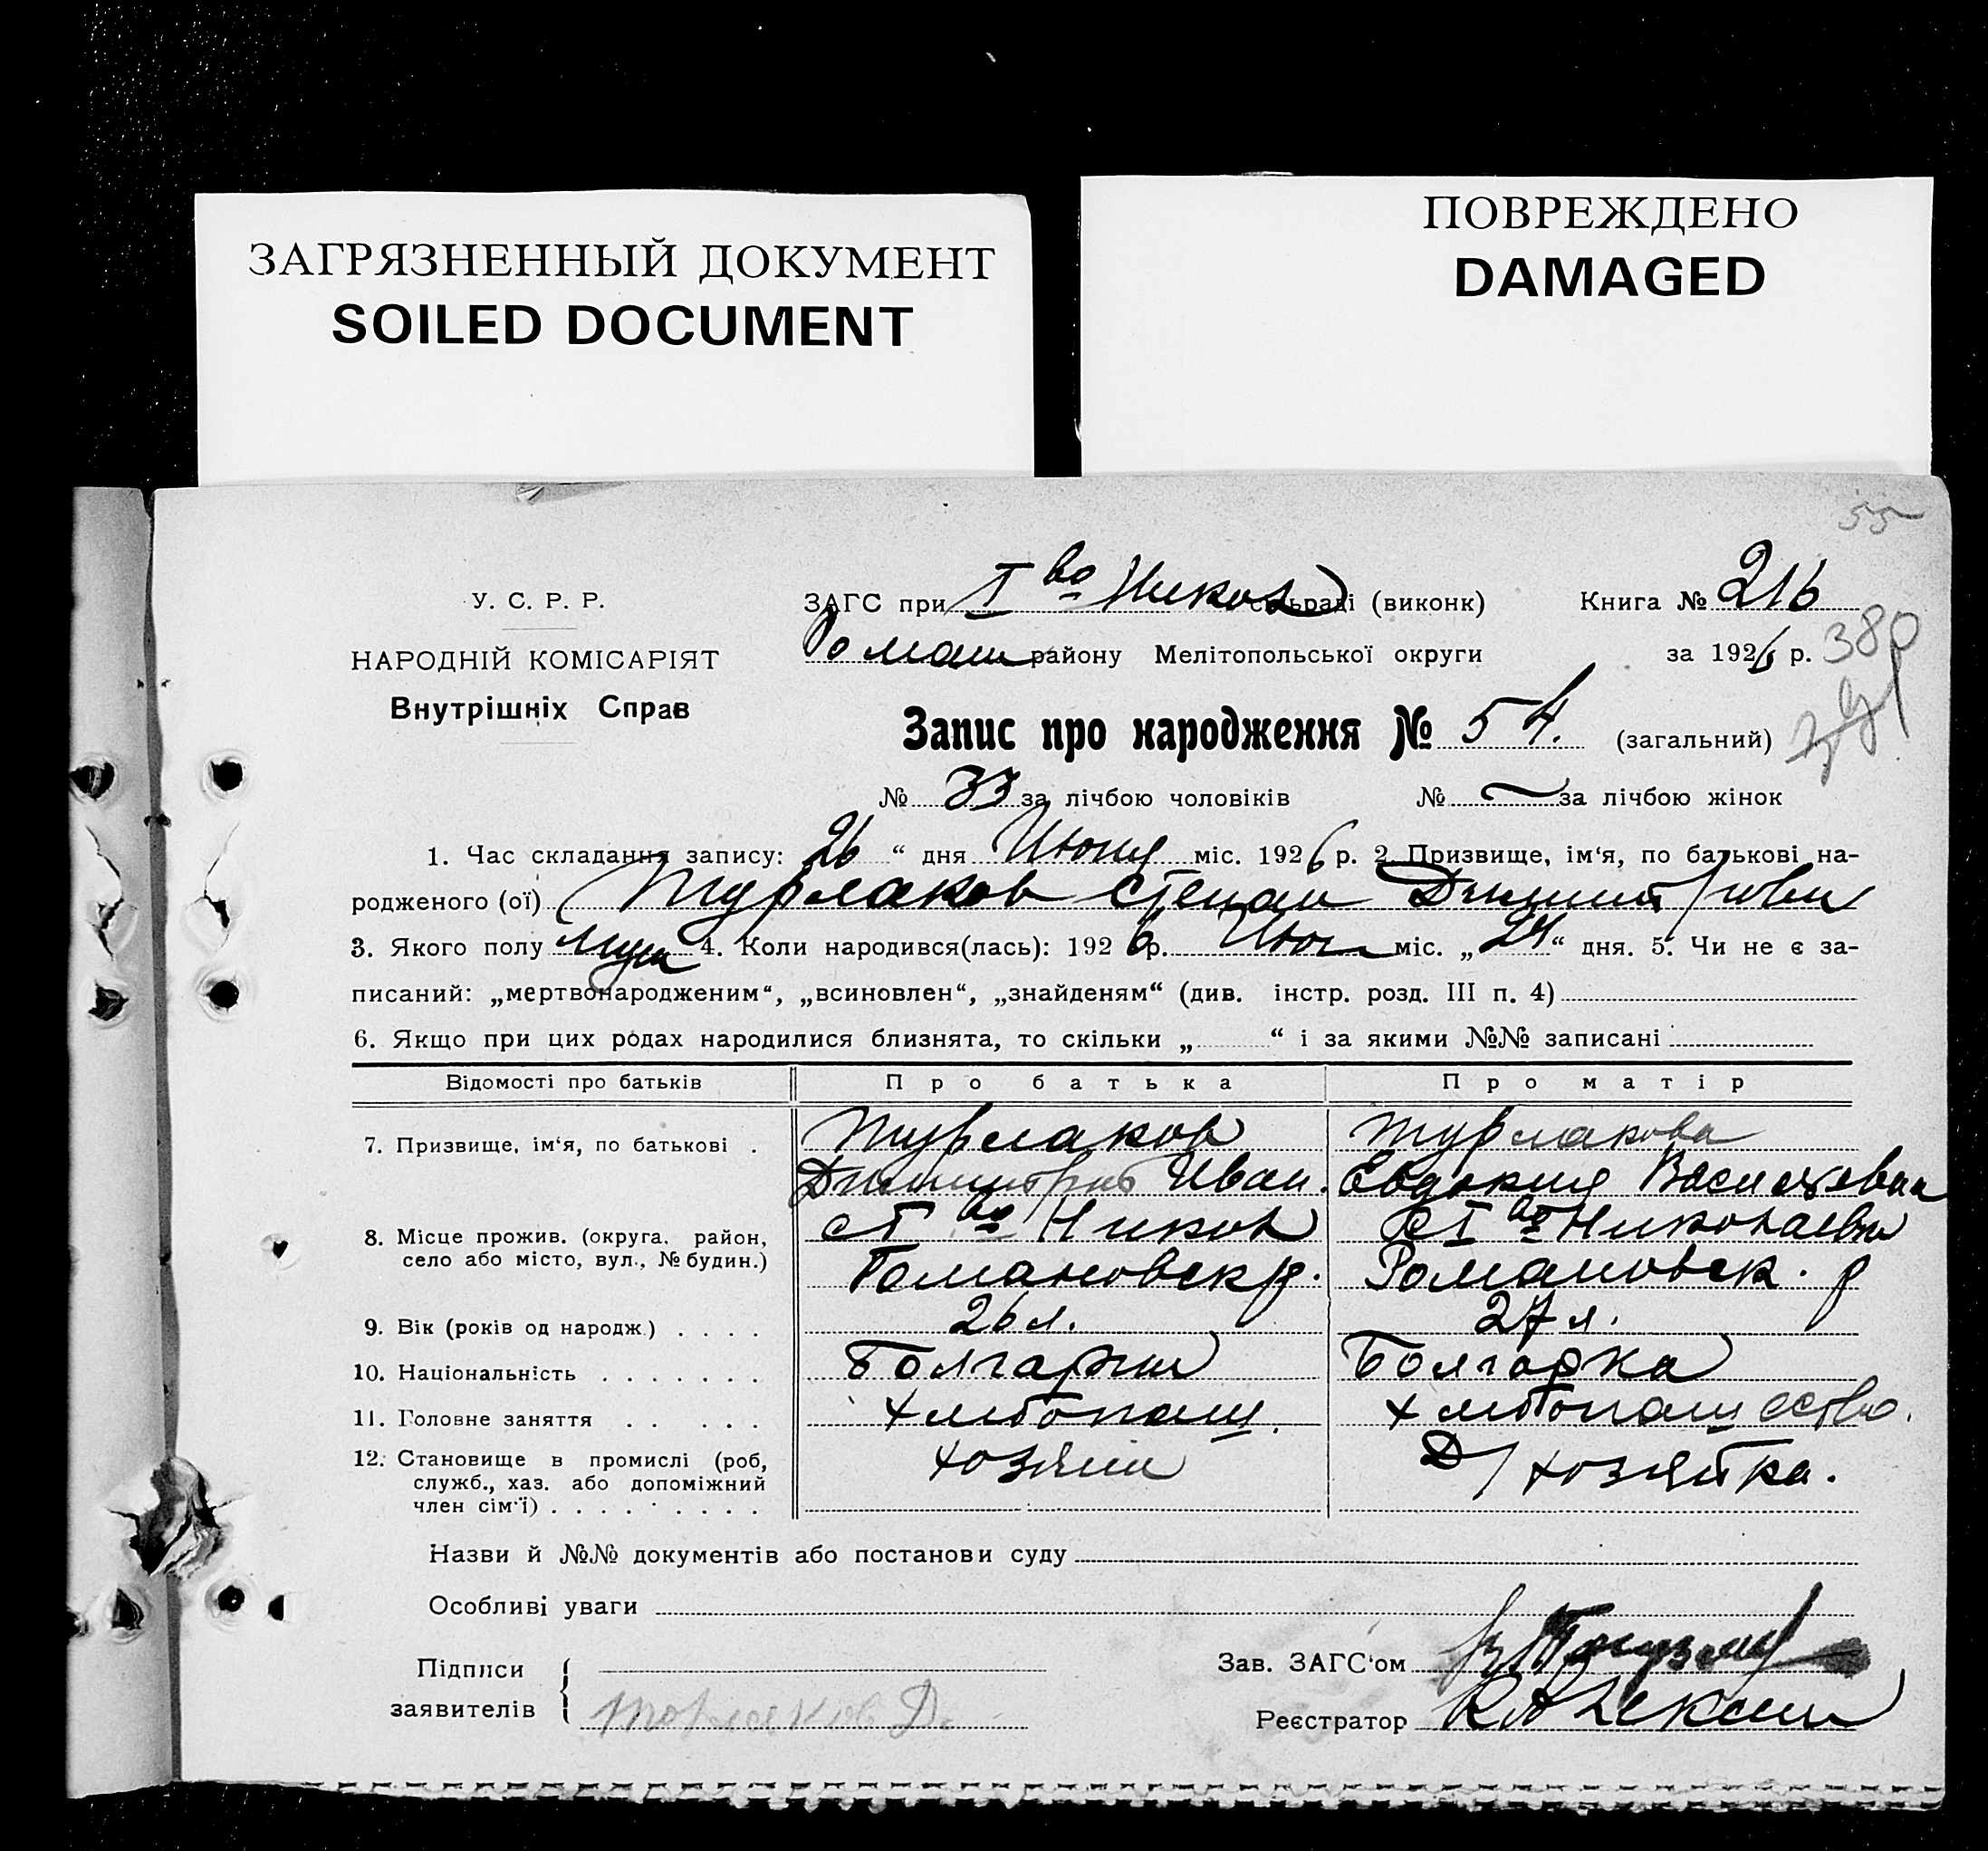 ЗАГРЯЗНЕННЫЙ ДОКУМЕНТ
SOILED DOCUMENT
ПОВРЕЖДЕНО
DAMAGED
55
У. С. Р. Р.
НАРОДНІЙ КОМІСАРІЯТ
Внутрішніх Справ
ЗАГС при І во Никол сільраді (виконк) Книга № 216
Роман району Мелітопольської округи за 1926 р. 380
Запис про народження № 54. (загальний)
№ 33 за лічбою чоловіків № — за лічбою жінок
1. Час складання запису: 26 " дня Июня міс. 1926 р. 2. Призвище, ім'я, по батькові на-
родженого (ої) Турлаков Степан Димитров
3. Якого полу муж 4. Коли народився(лась): 1926 р. Июн міс. „ 24 " дня. 5. Чи не є за-
писаний: „мертвонародженим", „всиновлен", „знайденям" (див. інстр. розд. III п. 4)
6. Якщо при цих родах народилися близнята, то скільки „ " і за якими №№ записані
Відомості про батьків Про батька Про матір
7. Призвище, ім'я, по батькові . Турлаков Турлакова
Димитрий Иван. Евдокия Васильевна
8. Місце прожив. (округа, район, с І во Никол с І во Николаевка
село або місто, вул., № будин.) Романовск р. Романовск. р
9. Вік (років од народж.) . . . . 26 л. 27 л.
10. Національність . . . . . . . Болгарин Болгарка
11. Головне заняття . . . . . Хлебопаш. Хлебопашество.
12. Становище в промислі (роб, хозяин Д/хозяйка.
служб., хаз. або допоміжний
член сім'ї) . . . . . . . . .
Назви й №№ документів або постанови суду
Особливі уваги
Підписи
заявителів Торлаков Д.
Зав. ЗАГС'ом
Реєстратор